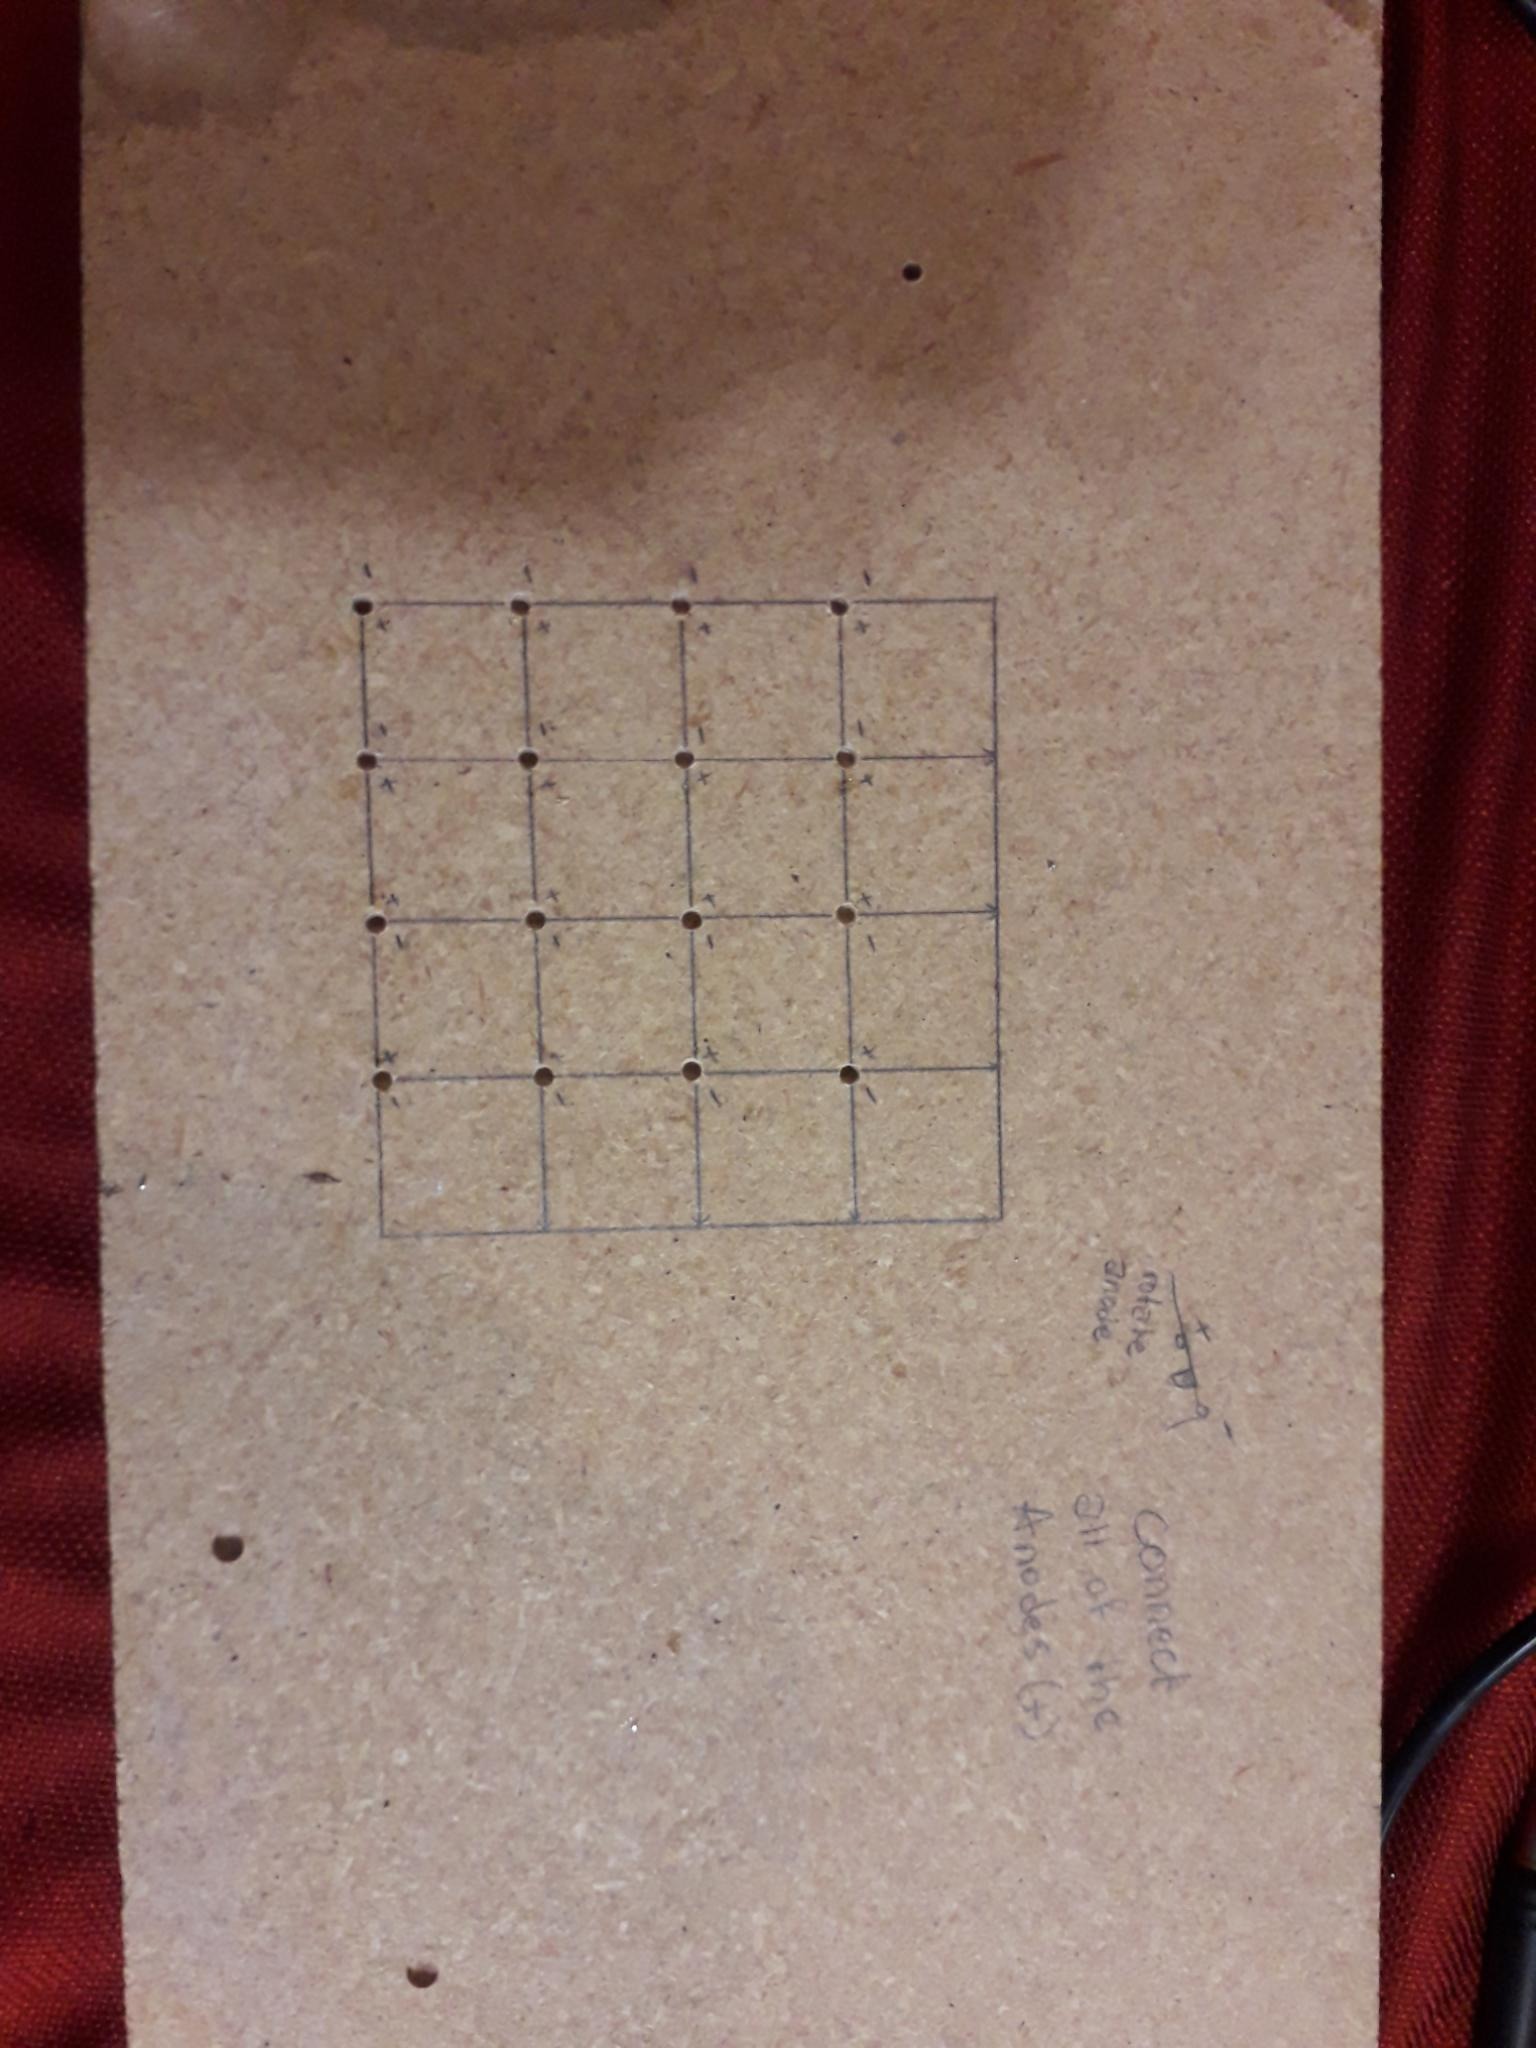 rotate
anode
Connect
all of the
Anodes (+)